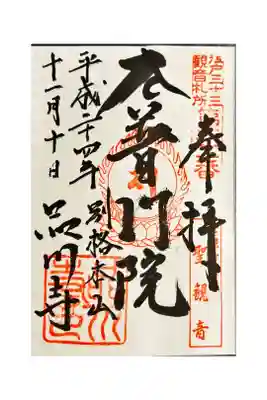 江戸三十三
観音札所
番
聖観音
奉拝
大普門院
別格本山
品川寺
平成二十四年
十一月十日